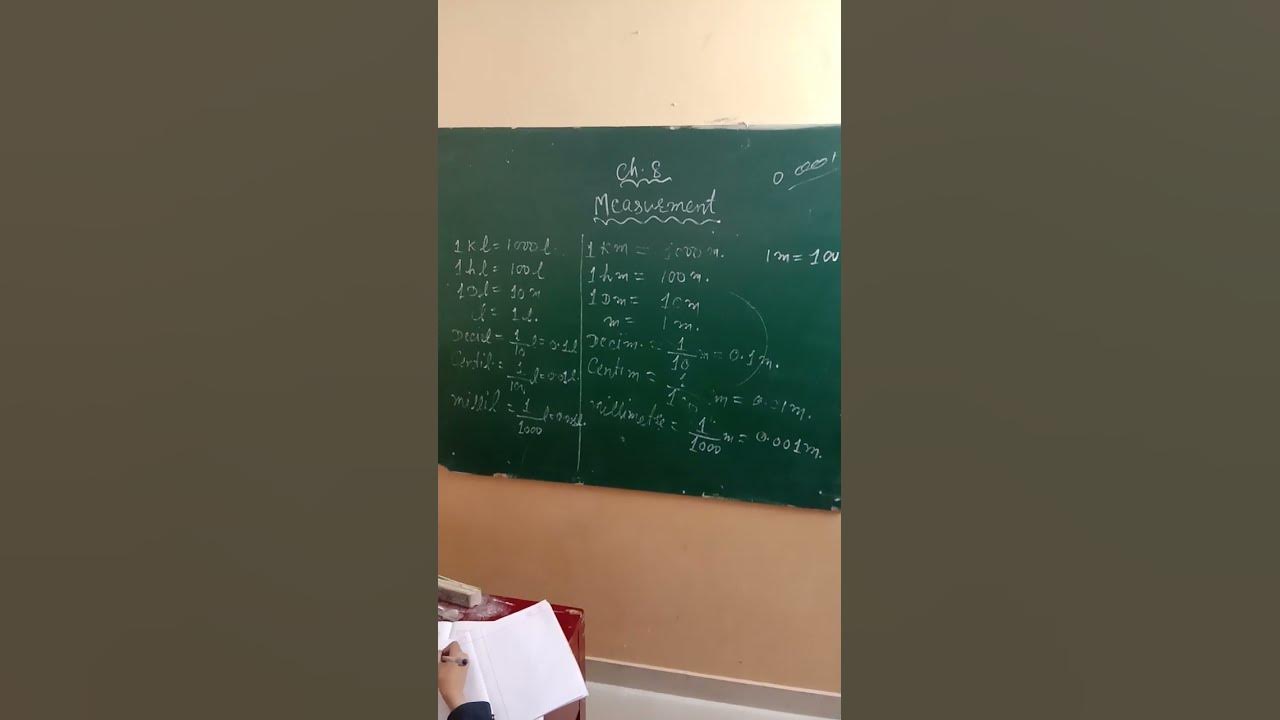 Ch. 8
Measurement
1 Kl = 1000 l
1 hl = 100 l
1 Dl = 10 m
l = 1 l.
Decil = 1/10 l = 0.1 l
Centil = 1/100 l = 0.01 l.
millil = 1/1000 l = 0.001 l.
1 Km = 1000 m.
1 hm = 100 m.
1 Dm = 10 m
m = 1 m.
Decim. = 1/10 m = 0.1 m.
Centim = 1/100 m = 0.01 m.
Millimetre = 1/1000 m = 0.001 m.
1 m = 100